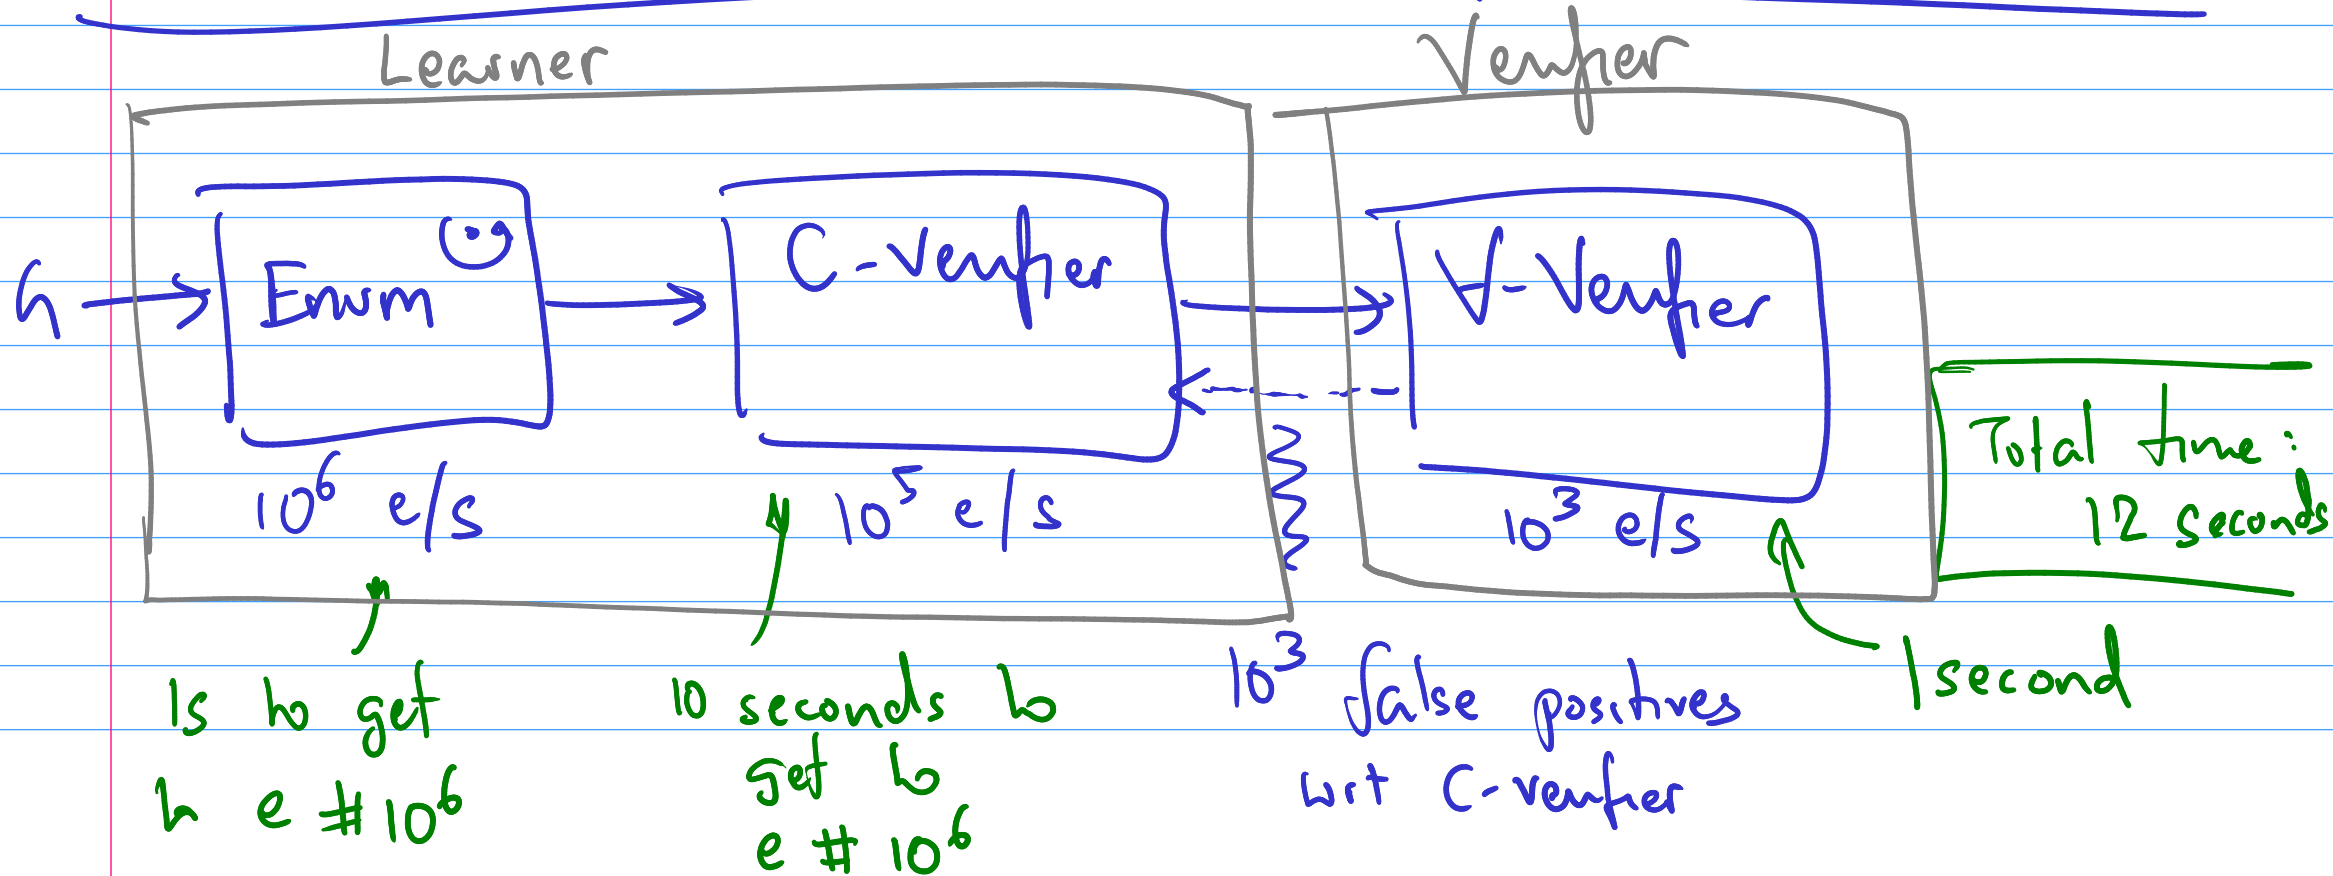 Learner
Verifier
G
Enum
C-Verifier
∀-Verifier
10⁶ e/s
10⁵ e/s
10³ e/s
Total time:
12 seconds
1s to get
to e #10⁶
10 seconds to
get to
e # 10⁶
10³ false positives
wrt C-verifier
1 second